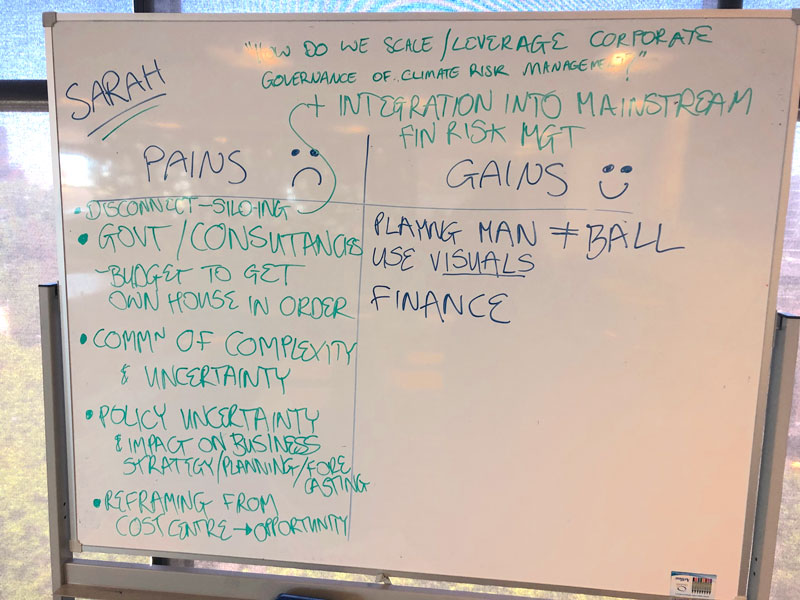 SARAH
"HOW DO WE SCALE/LEVERAGE CORPORATE
GOVERNANCE OF.. CLIMATE RISK MANAGEMENT?"
+ INTEGRATION INTO MAINSTREAM
FIN RISK MGT
PAINS
GAINS
• DISCONNECT-SILO-ING
• GOVT/CONSUTANCIES
-BUDGET TO GET
OWN HOUSE IN ORDER
• COMMN OF COMPLEXITY
& UNCERTAINTY
• POLICY UNCERTAINTY
& IMPACT ON BUSINESS
STRATEGY/PLANNING/FORE
CASTING
• REFRAMING FROM
COST CENTRE → OPPORTUNITY
PLAYING MAN ≠ BALL
USE VISUALS
FINANCE